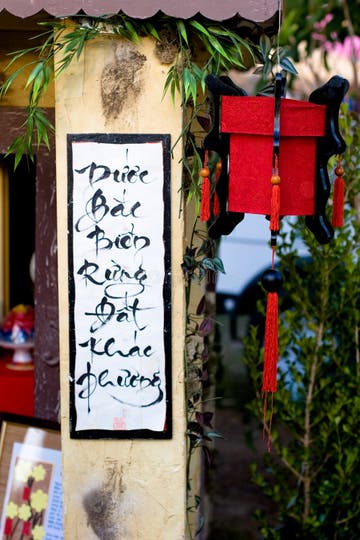 Nước
Bắc
Biển
Rừng
Đất
Khác
Phương